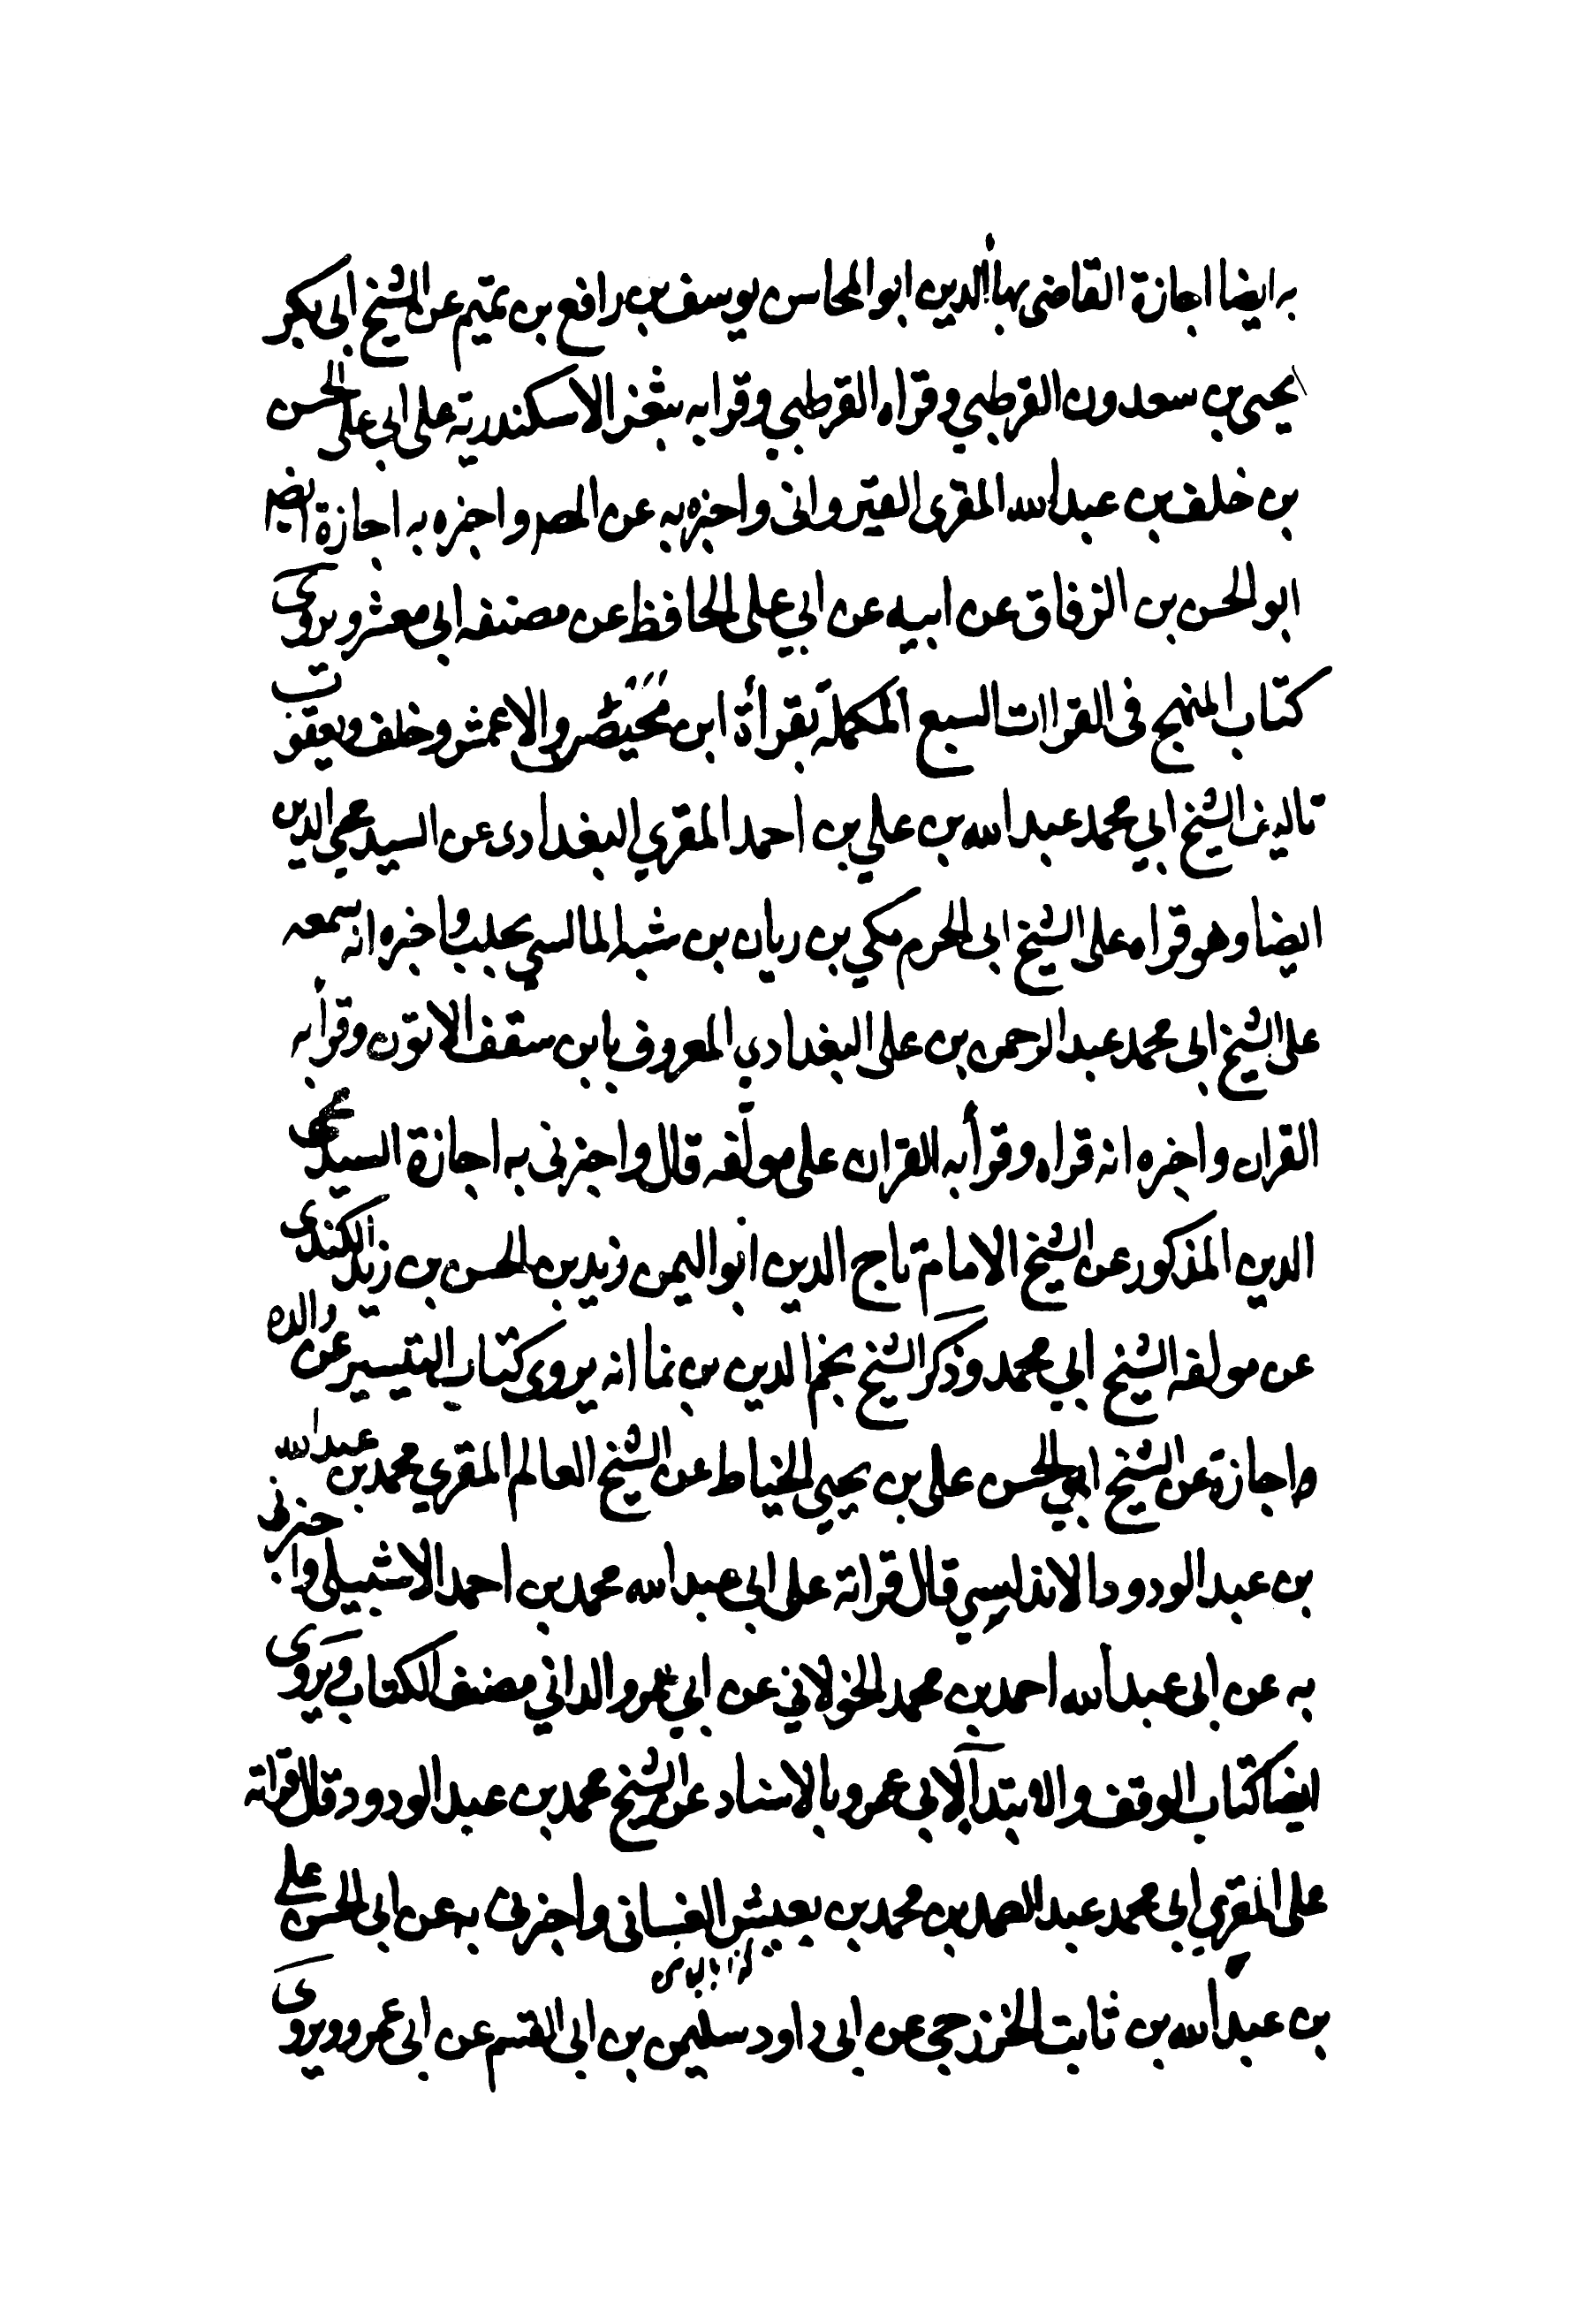 به ايضا اجازة القاضى بهاأ الدين ابو المحاسن يوسف بن رافع بن تميم عن الشيخ ابى بكر
يحيى بن سعدون القرطبي وقراه القرطبي وقرا به بثغر الاسكندرية على ابى على الحسن
بن خلف بن عبد الله المقرى القيروانى واخبره به عن المص واخبره به اجازة ايضا
ابو الحسن بن الزفاق عن ابيه عن ابي على الحافظ عن مصنفه ابى معشر ويروى
كتاب المنهج فى القراات السبع المكملة بقرأة ابن محيصن والاعمش وخلف ويعقوب
تاليف الشيخ ابي محمد عبد الله بن علي بن احمد المقري البغدادى عن السيد محيى الدين
ايضا وهو قراه على الشيخ ابى الحرم مكي بن ريان بن شبه الماكسي بحلب واخبره انه سمعه
على الشيخ ابى محمد عبد الرحمن بن على البغدادي المعروف بابن سقف الاتون وقرأ به
القران واخبره انه قراه وقرأ به القران على مولفه قال واخبرنى به اجازة السيد محيى
الدين المذكور عن الشيخ الامام تاج الدين ابو اليمن زيد بن الحسن بن زيد الكندى
عن مولفه الشيخ ابي محمد وذكر الشيخ نجم الدين بن نما انه يروى كتاب التيسير عن والده
اجازة عن الشيخ ابي الحسن على بن يحيى الخياط عن الشيخ العالم المقري محمد بن عبد الله
بن عبد الودود الاندلسي قال قراته على ابى عبد الله محمد بن احمد الاشبيلى واخبرنى
به عن ابى عبد الله احمد بن محمد الخولاني عن ابي عمرو الداني مصنف الكتاب ويروى
ايضا كتاب الوقف والابتدآ لابى عمرو بالاسناد عن الشيخ محمد بن عبد الودود قال قراته
على المقري ابى محمد عبد الصمد بن محمد بن يعيش الغسانى واخبرنى به عن ابى الحسن على
بن عبد الله بن ثابت الخزرجى عن ابى داود سليمن بن ابى القسم عن ابى عمرو ويروى